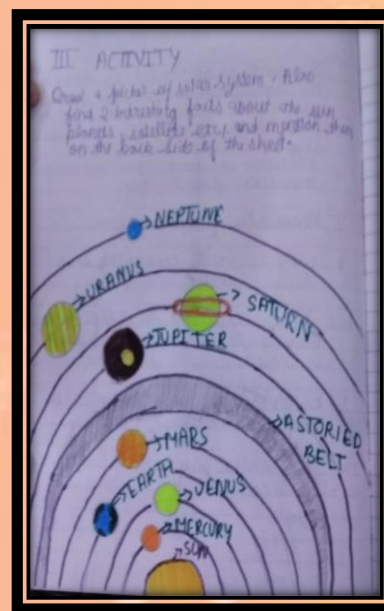 III ACTIVITY
Draw a picture of solar system. Also
find 2 intresting facts about the sun
planets, satellite etc, and mention then
on the back side of the sheet.
NEPTUNE
URANUS
SATURN
JUPITER
ASTORIED
BELT
MARS
EARTH
VENUS
MERCURY
SUN